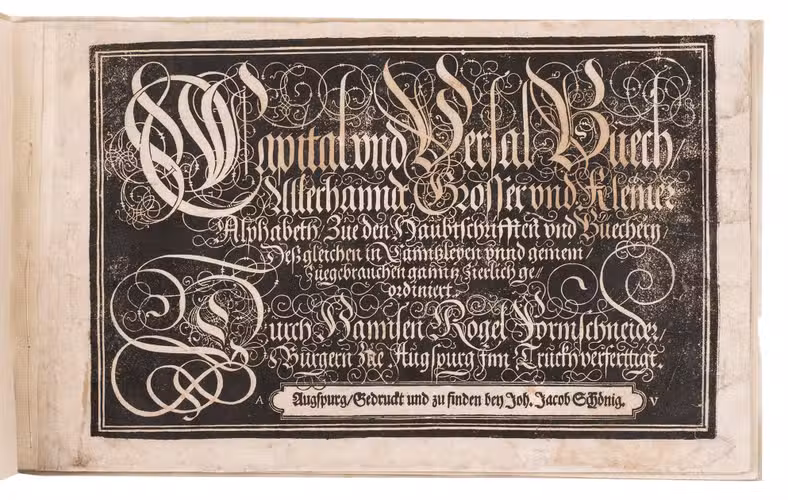 Capital vnd Versal Buech/
Allerhannd Grosser vnd Klemer
Alphabeth Zue den Haubtschrifften vnd Büechern
Deßgleichen in Canntzleyen vnnd gemein
Zuegebrauchen gannz Zierlich ge//
ordiniert.
Durch Hannsen Rogel Formschneider,
Burgern zue Augspurg Inn Truckh verferttigt.
A Augspurg/Gedruckt und zu finden bey Joh. Jacob Schönig. V